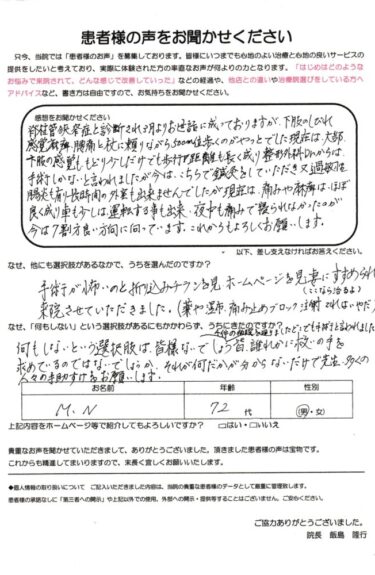 患者様の声をお聞かせください
只今、当院では「患者様のお声」を募集しております。皆様にいつまでも心地のよい治療と心地の良いサービスの
提供をしたいと考えており、実際に体験された方の率直なお声が何よりの力となります。「はじめはどのような
お悩みで来院されて、どんな感じで改善していった」などの経過や、他店との違いや治療院選びをしている方へ
アドバイスなど、書き方は自由ですので、お気持ちをお聞かせください。
感想をお聞かせください
脊柱管狭窄症と診断され2月よりお世話に成っておりますが、下肢のしびれ
感覚麻痺、腰痛と杖に頼りながら500m位歩くのがやっとでした現在は大部
下肢の感覚ももどり少しだけでも歩行距離も長く成り整形外科Drからは、
手術しかないと言われましたが今は、こちらで鍼灸をしていただき又過敏性
腸炎も有り長時間の外業も出来ませんでしたが現在は、痛みや麻痺は、ほぼ
良く成り車も少しは、運転する事も出来、夜中も痛みで寝られなかったのが
今は7割方良い方向に向っています。これからもよろしくお願いします。
以下、差し支えなければお答えください。
なぜ、他にも選択肢があるなかで、うちを選んだのですか?
手術が怖いのと折り込みチラシを見ホームページを見妻にすすめられ
(ここなら治るよ)
来院させていただきました。(薬や湿布、痛み止めブロック注射される
なぜ、「何もしない」という選択肢があるにもかかわらず、うちにきたのですか?
何もしないという選択肢は、皆様ないでしょう皆、誰れかに救いの手を
求めているのではないでしょうか、それが何だかが分からないだけで是非、多くの
人々の手助けするお願いします。
お名前 年齢 性別
M.N 72代 (男・女)
上記内容をホームページ等で紹介してもよろしいですか? □はい・□いいえ
貴重なお声を聞かせていただきまして、ありがとうございました。頂きました患者様の声は宝物です。
これからも精進してまいりますので、末長く宜しくお願いいたします。
◆個人情報の取り扱いについて ご記入いただきました内容は、当院の貴重な患者様のデータとして厳重に管理致します。
患者様の承諾なしに「第三者への開示」や上記以外での使用、外部への開示・提供等することはございません。ご安心ください。
ご協力ありがとうございました。
院長 飯島 隆行